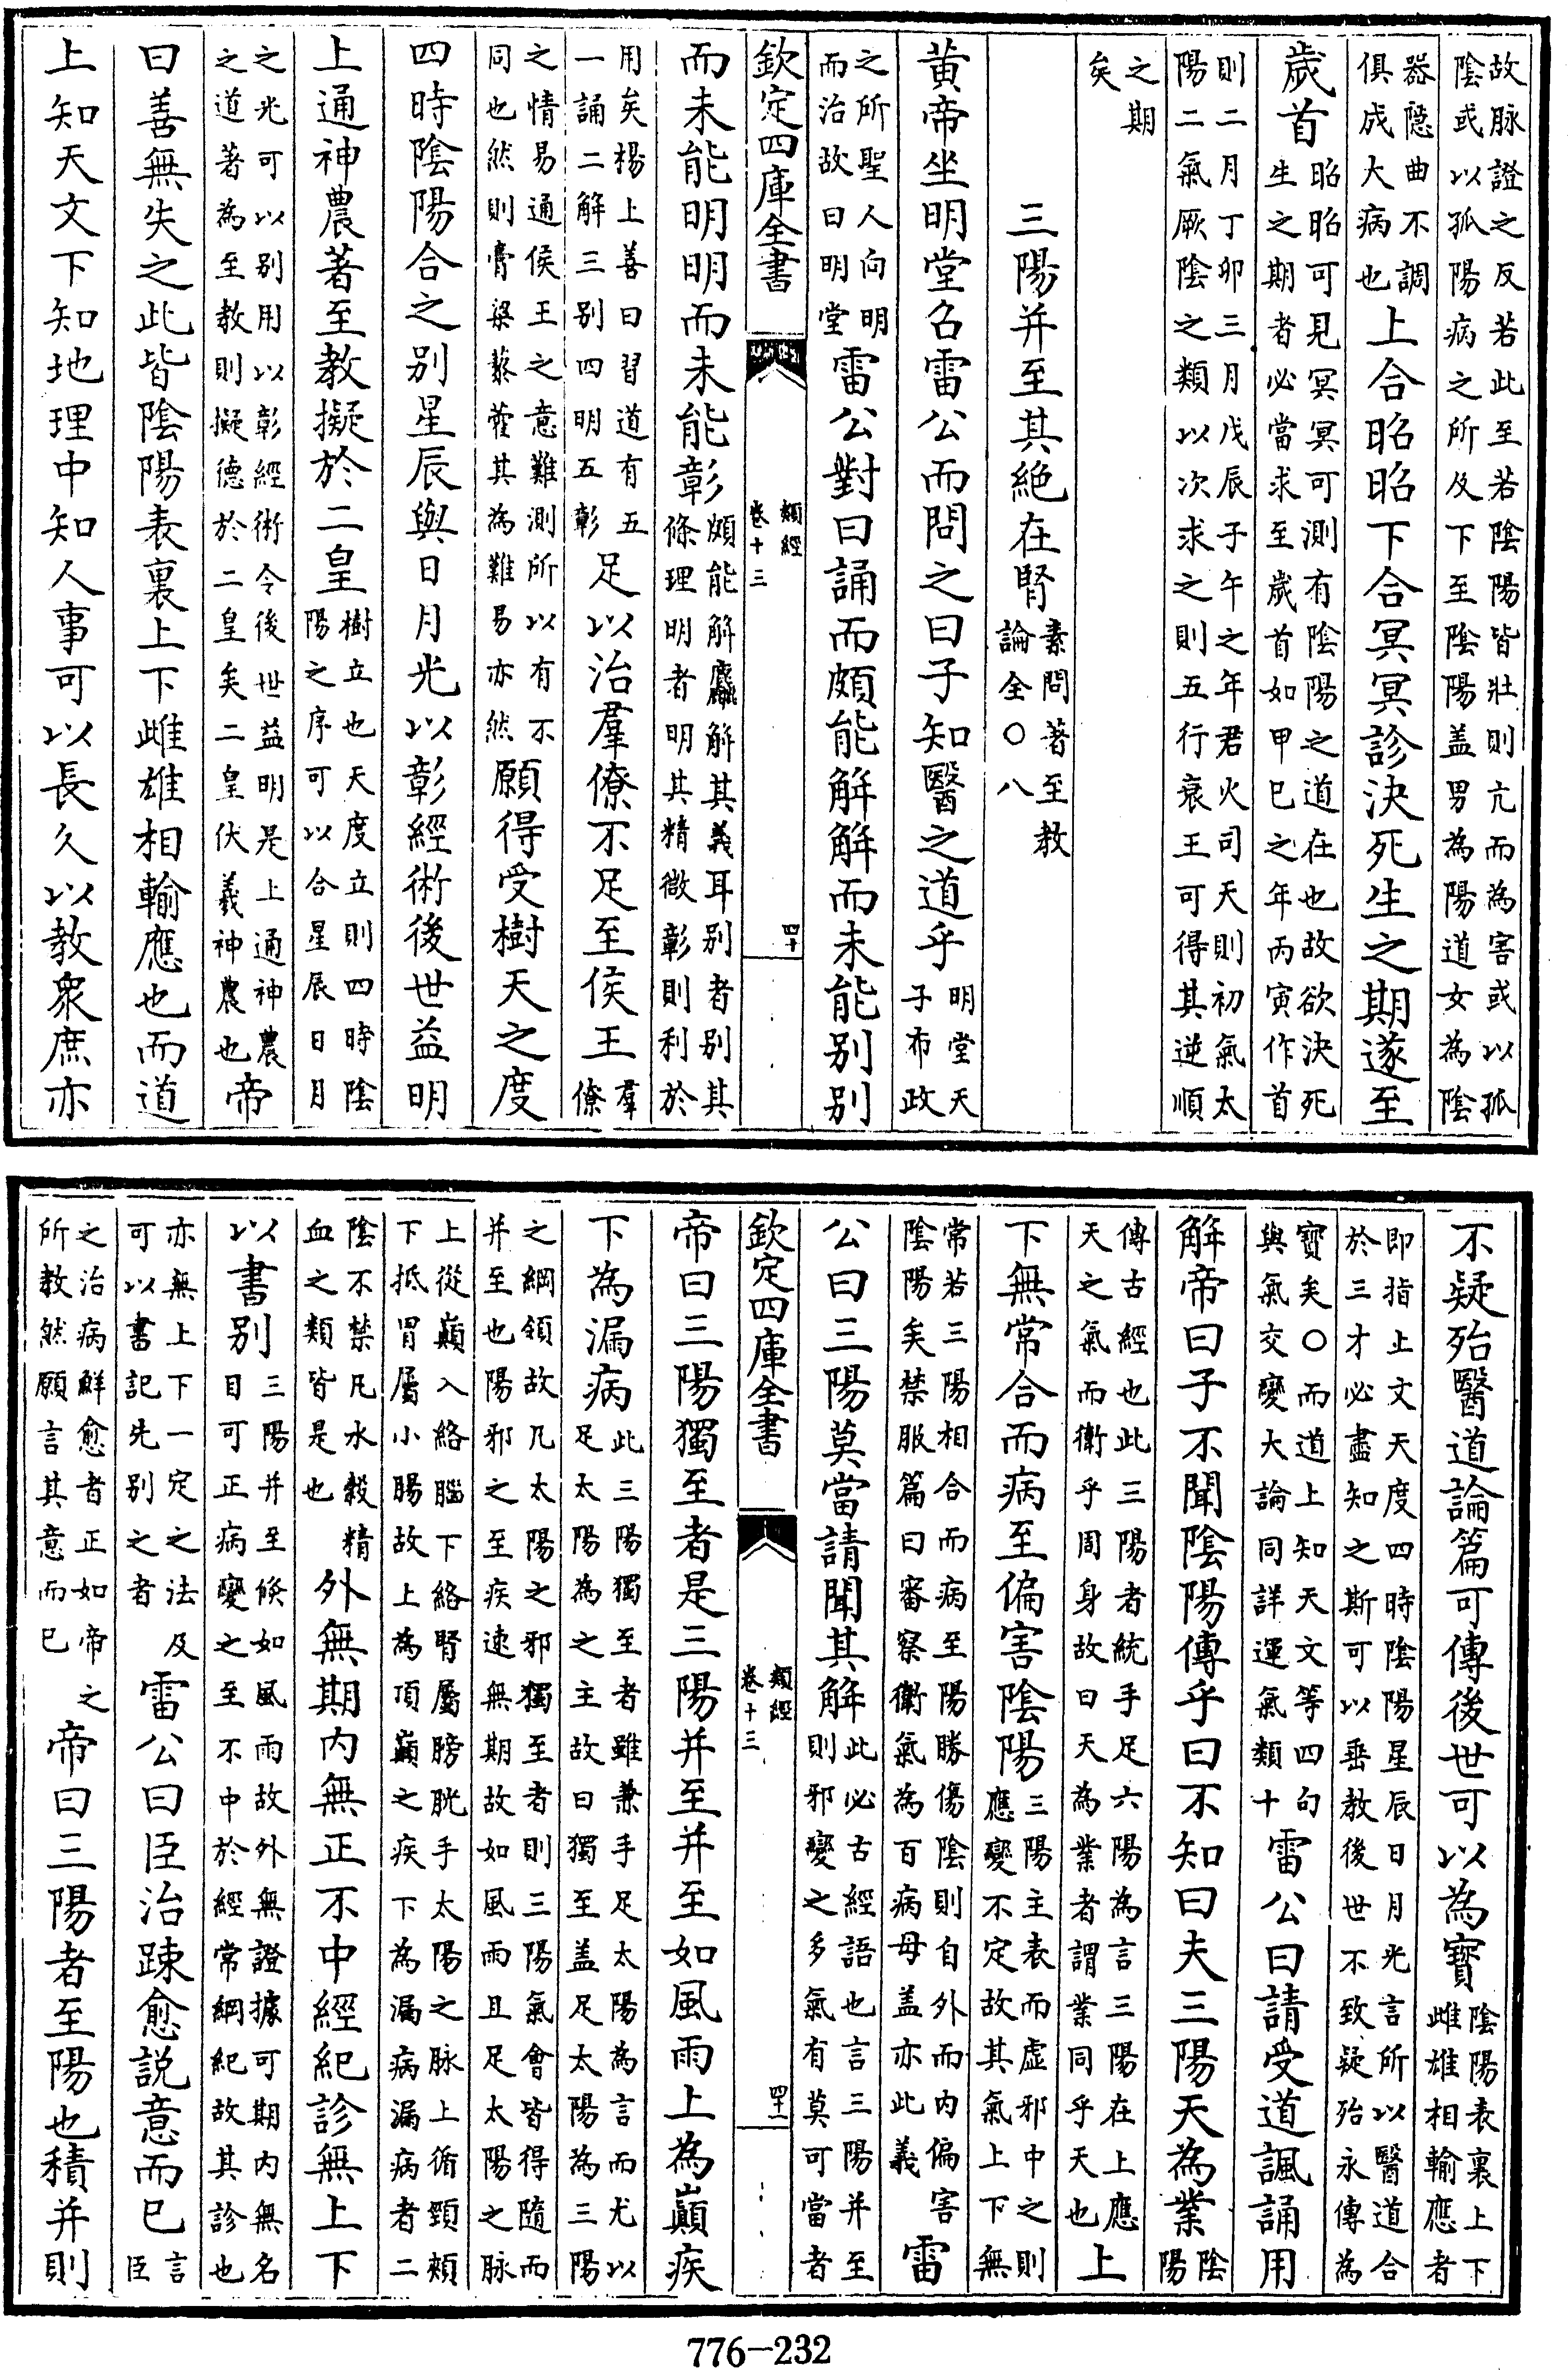 故脉證之反若此至若陰陽皆壯則亢而為害或以孤
陰或以孤陽病之所及下至陰陽盖男為陽道女為陰
器隱曲不調
俱成大病也
上合昭昭下合冥冥診決死生之期遂至
歲首
昭昭可見冥冥可測有陰陽之道在也故欲決死
生之期者必當求至歲首如甲巳之年丙寅作首
則二月丁卯三月戊辰子午之年君火司天則初氣太
陽二氣厥陰之類以次求之則五行衰王可得其逆順
之期
矣
三陽并至其絶在腎
素問著至教
論全〇八
黄帝坐明堂召雷公而問之曰子知醫之道乎
明堂天
子布政
之所聖人向明
而治故曰明堂
雷公對曰誦而頗能解解而未能别别
欽定四庫全書
類經
卷十三
四十
而未能明明而未能彰
頗能解麤解其義耳别者别其
條理明者明其精微彰則利於
用矣楊上善曰習道有五
一誦二解三别四明五彰
足以治羣僚不足至侯王
羣
僚
之情易通侯王之意難測所以有不
同也然則膏粱藜藿其為難易亦然
願得受樹天之度
四時陰陽合之别星辰與日月光以彰經術後世益明
上通神農著至教擬於二皇
樹立也天度立則四時陰
陽之序可以合星辰日月
之光可以别用以彰經術令後世益明是上通神農
之道著為至教則擬德於二皇矣二皇伏羲神農也
帝
曰善無失之此皆陰陽表裏上下雌雄相輸應也而道
上知天文下知地理中知人事可以長久以教衆庶亦
不疑殆醫道論篇可傳後世可以為寳
陰陽表裏上下
雌雄相輸應者
即指上文天度四時陰陽星辰日月光言所以醫道合
於三才必盡知之斯可以垂教後世不致疑殆永傳為
寳矣〇而道上知天文等四句
與氣交變大論同詳運氣類十
雷公曰請受道諷誦用
解帝曰子不聞陰陽傳乎曰不知曰夫三陽天為業
陰
陽
傳古經也此三陽者統手足六陽為言三陽在上應
天之氣而衛乎周身故曰天為業者謂業同乎天也
上
下無常合而病至偏害陰陽
三陽主表而虚邪中之則
應變不定故其氣上下無
常若三陽相合而病至陽勝傷陰則自外而内偏害
陰陽矣禁服篇曰審察衛氣為百病母盖亦此義
雷
公曰三陽莫當請聞其解
此必古經語也言三陽并至
則邪變之多氣有莫可當者
欽定四庫全書
類經
卷十三
四十一
帝曰三陽獨至者是三陽并至并至如風雨上為巔疾
下為漏病
此三陽獨至者雖兼手足太陽為言而尤以
足太陽為之主故曰獨至盖足太陽為三陽
之綱領故凡太陽之邪獨至者則三陽氣會皆得隨而
并至也陽邪之至疾速無期故如風雨且足太陽之脉
上從巔入絡腦下絡腎屬膀胱手太陽之脉上循頸頰
下抵胃屬小腸故上為頂巔之疾下為漏病漏病者二
陰不禁凡水穀精
血之類皆是也
外無期内無正不中經紀診無上下
以書别
三陽并至倏如風雨故外無證據可期内無名
目可正病變之至不中於經常綱紀故其診也
亦無上下一定之法及
可以書記先别之者
雷公曰臣治疎愈説意而已
言
臣
之治病鮮愈者正如帝之
所教然願言其意而已
帝曰三陽者至陽也積并則
776-232